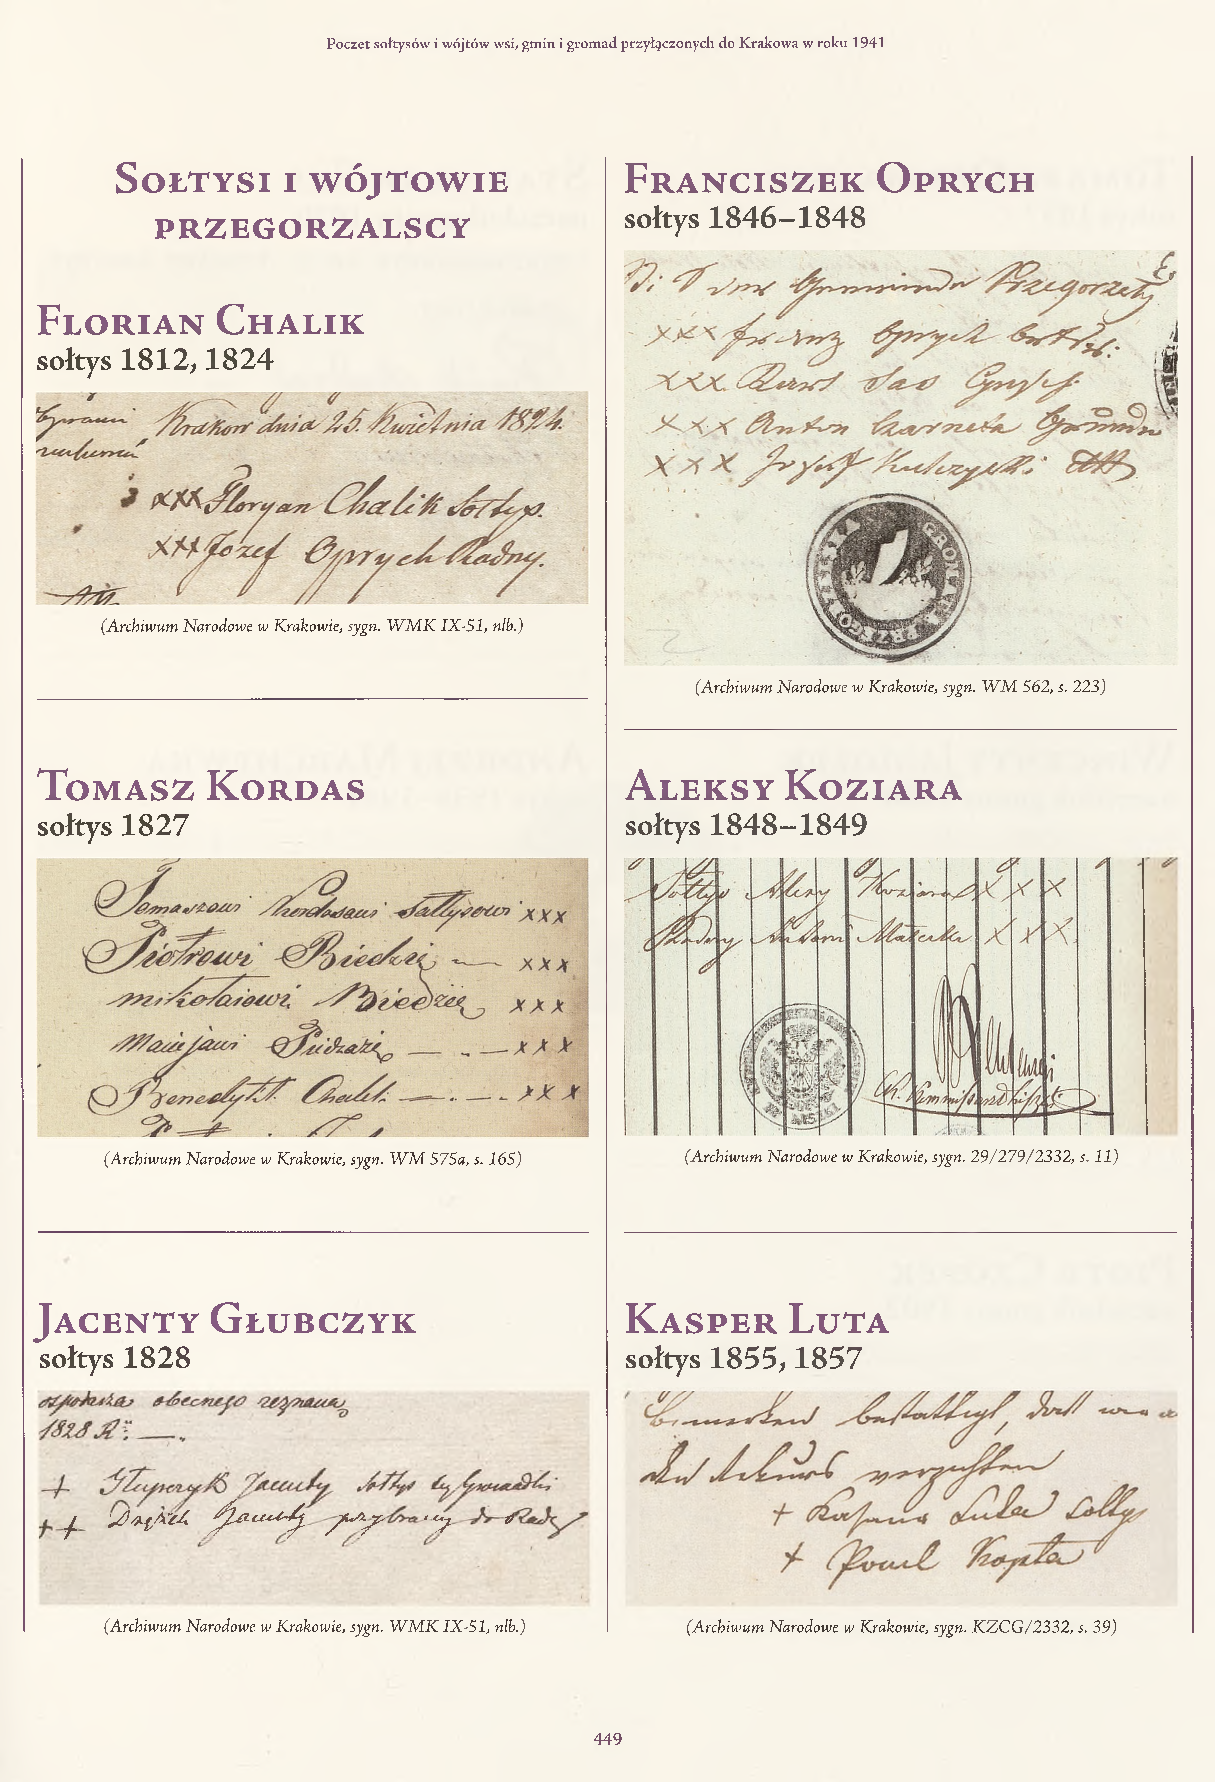 Poczet sołtysów i wójtów wsi, gmin i gromad przyłączonych do Krakowa w roku 1941
Sołtysi i wójtowie
przegorzalscy
Florian Chalik
sołtys 1812, 1824
Krakow dnia 25. Kwietnia 1824.
xxx Floryan Chalik Sołtys.
xxx Jozef Oprych Radny.
(Archiwum Narodowe w Krakowie, sygn. WMK IX-51, nlb.)
Tomasz Kordas
sołtys 1827
Tomaszowi Kordasowi Sałtysowi xxx
Piotrowi Biedrzi xxx
mikołaiowi Biedrzę xxx
Maciejawi xxx
Benedykt. Chalik xxx
(Archiwum Narodowe w Krakowie, sygn. WM 575a, s. 165)
Jacenty Głubczyk
sołtys 1828
obecnego zeznania
1828 R
+ Głupczyk Jacenty sołtys
++ Jacenty przybrany do Rady
(Archiwum Narodowe w Krakowie, sygn. WMK IX-51, nlb.)
Franciszek Oprych
sołtys 1846–1848
Gemeinde Przegorzały
xxx Franz Oprych
xxx
xxx Anton Czarnota
xxx Josef Kulczycki
(Archiwum Narodowe w Krakowie, sygn. WM 562, s. 223)
Aleksy Koziara
sołtys 1848–1849
Sołtys Alexy Koziara X X X
Radny Antoni X X X
(Archiwum Narodowe w Krakowie, sygn. 29/279/2332, s. 11)
Kasper Luta
sołtys 1855, 1857
bestattigt, daß
den Rekurs verzichten
+ Luta Sołtys
+ Kopta
(Archiwum Narodowe w Krakowie, sygn. KZCG/2332, s. 39)
449